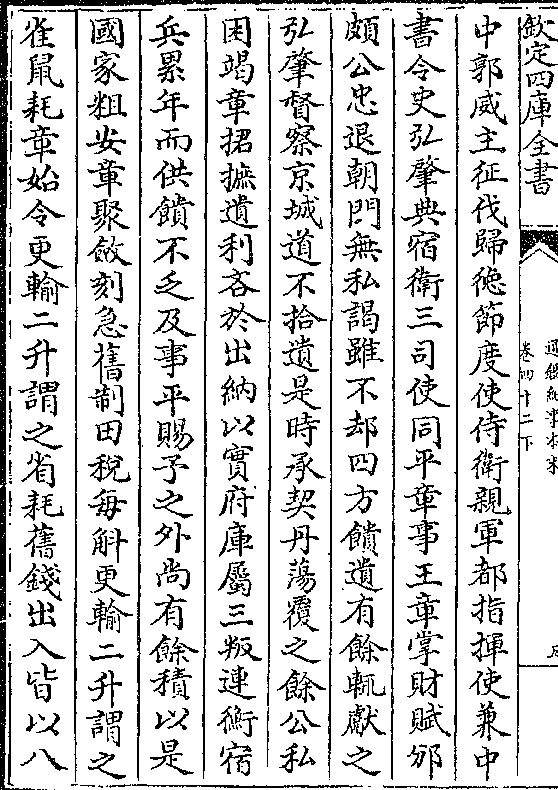 欽定四庫全書
通鑑紀事本末
卷四十二下
中郭威主征伐歸徳節度使侍衛親軍都指揮使兼中
書令史弘肇典宿衛三司使同平章事王章掌財賦邠
頗公忠退朝門無私謁雖不却四方饋遺有餘輒獻之
弘肇督察京城道不拾遺是時承契丹蕩覆之餘公私
困竭章捃摭遺利吝於出納以實府庫屬三叛連衡宿
兵累年而供饋不乏及事平賜予之外尚有餘積以是
國家粗安章聚斂刻急舊制田稅每斛更輸二升謂之
雀鼠耗章始令更輸二斗謂之省耗舊錢出入皆以八